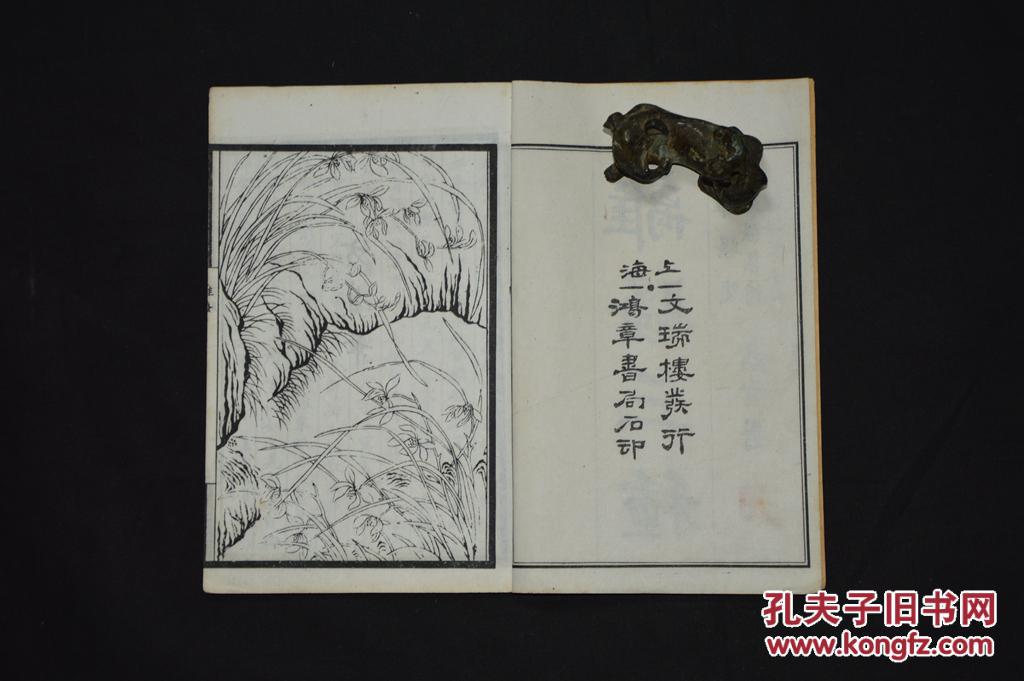 上一文瑞樓發行
海一鴻章書局石印
孔夫子旧书网
www.kongfz.com